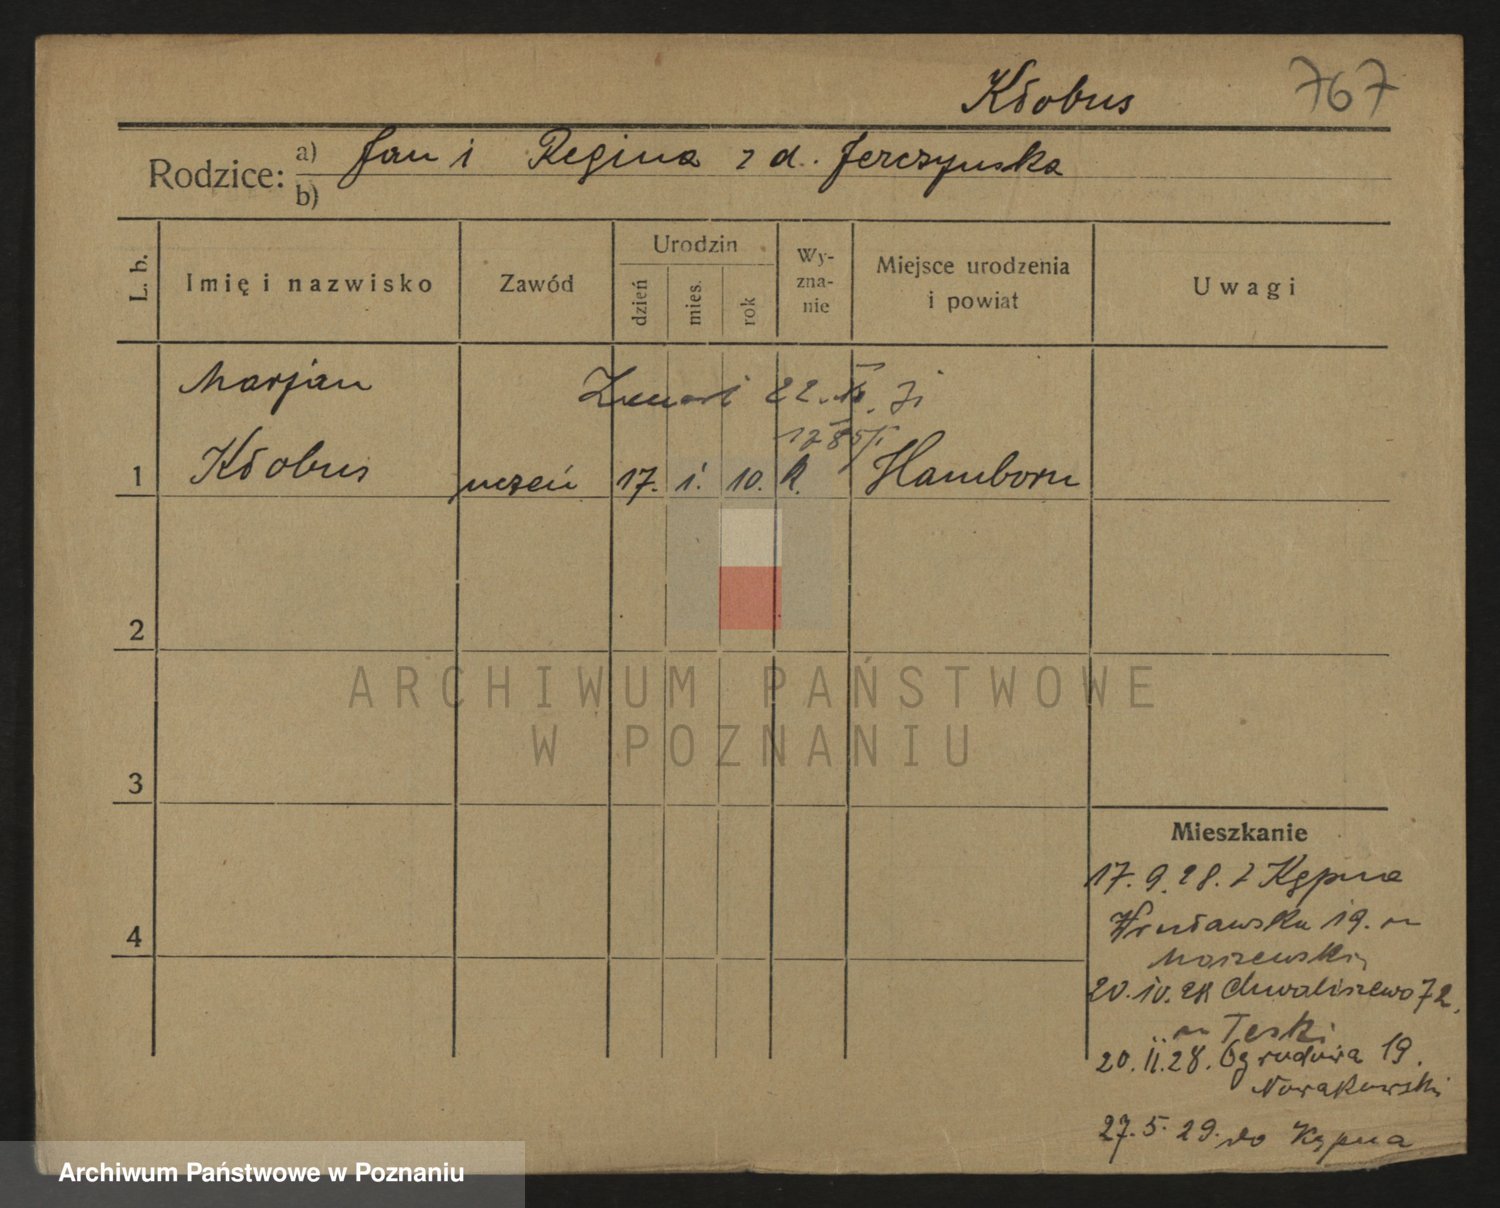 Kłobus 767
Rodzice: a) Jan i Regina z d. Jerczyńska
b)
L. b. Imię i nazwisko Zawód Urodzin dzień mies. rok Wy-zna-nie Miejsce urodzenia i powiat Uwagi
Marjan Zmarł 22.
Kłobus
1 uczeń 17. i. 10. k. Hamborn
2
ARCHIWUM PAŃSTWOWE
W POZNANIU
3
Mieszkanie
17. 9. 28. z Kępna
4
Wrocławska 19. m
20. 10. 28 Chwaliszewo 72.
m Teski
20. 11. 28. Ogrodowa 19.
Nowakowski
27. 5. 29. do Kępna
Archiwum Państwowe w Poznaniu